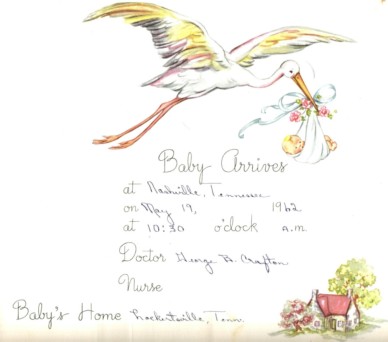 Baby Arrives
at Nashville, Tennessee
on May 19, 1962
at 10:30 o'clock a.m.
Doctor George B. Crafton
Nurse
Baby's Home Lockertsville, Tenn.